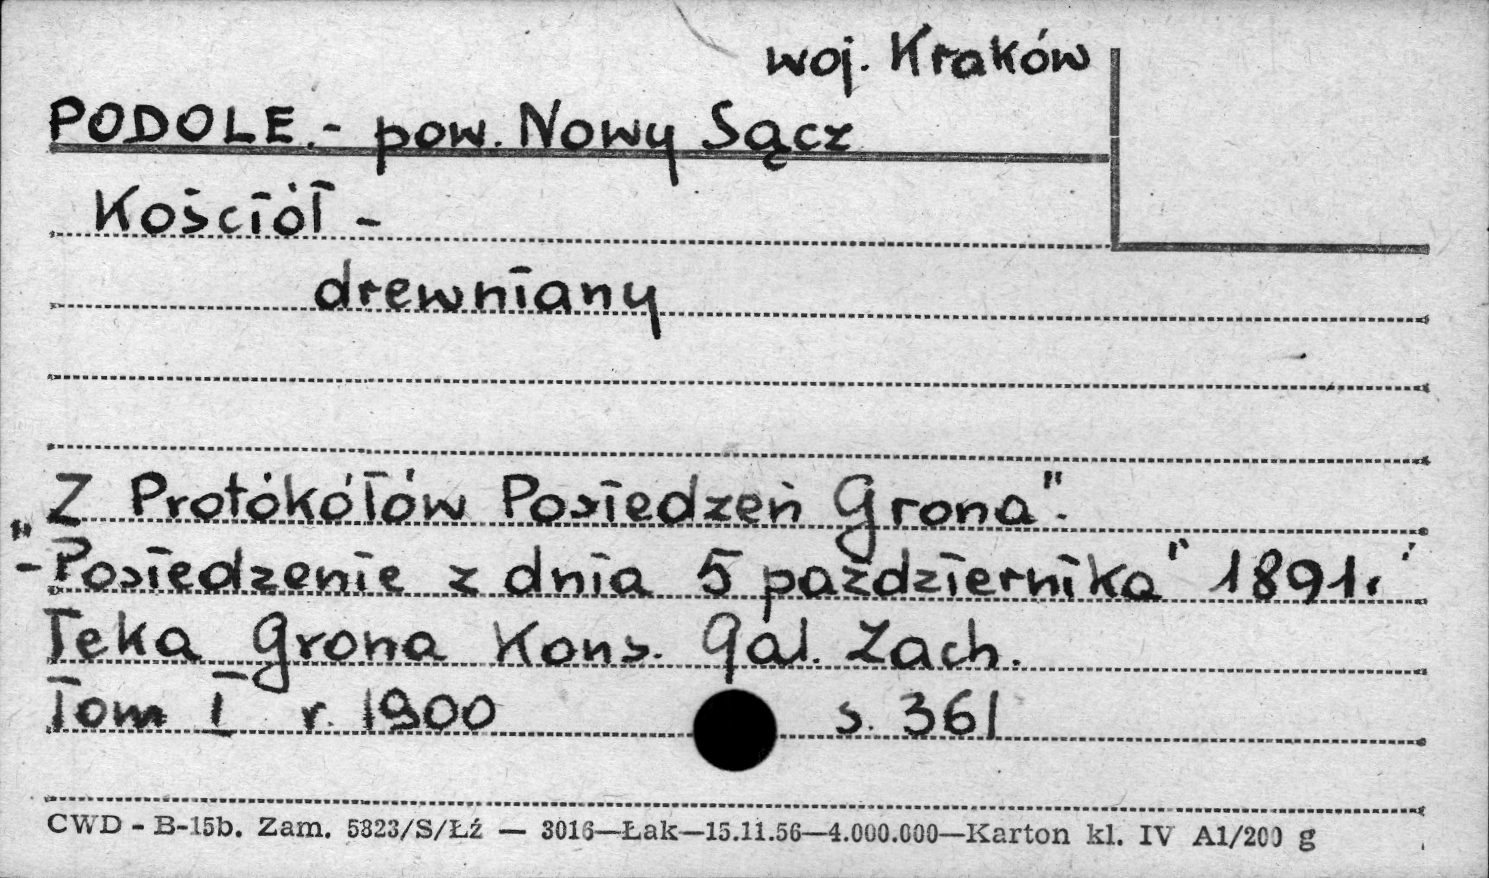 woj. Kraków
PODOLE.- pow. Nowy Sącz
Kościół -
drewniany
"Z Protókółów Posiedzeń Grona".
- Posiedzenie z dnia 5 października" 1891r.
Teka Grona Kons. Gal. Zach.
Tom I r. 1900 s. 361
CWD - B-15b. Zam. 5823/S/Łź — 3016—Łak—15.11.56—4.000.000—Karton kl. IV A1/200 g